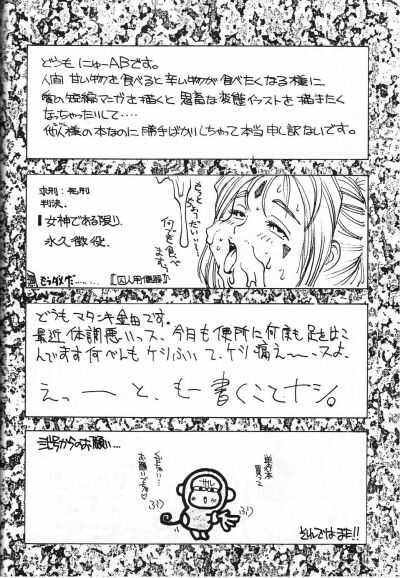 どうもにゅーABです。
人間 甘い物を食べると辛い物が食べたくなる様に
愛の短編マンガを描くと愚劣な変態イラストを描きたく
なっちゃったいして……
他人様の本なのに勝手ばかしちゃって本当申し訳ないです。
求刑：死刑
判決．
女神である限り
永久懲役．
もっと
ちょうだい
何でも食べ
ますっ
どうもマタンキ金田です。
最近体調悪いっス、今日も便所に何度も足を出こ
んですす何べんもケツふいて、ケツ痛え〜〜っスよ。
えっーと、もー書くことナシ。
お願い…
サル
単行本
買って
くだちゃい
お願いでち♡
ふり
ふり
それではまた!!